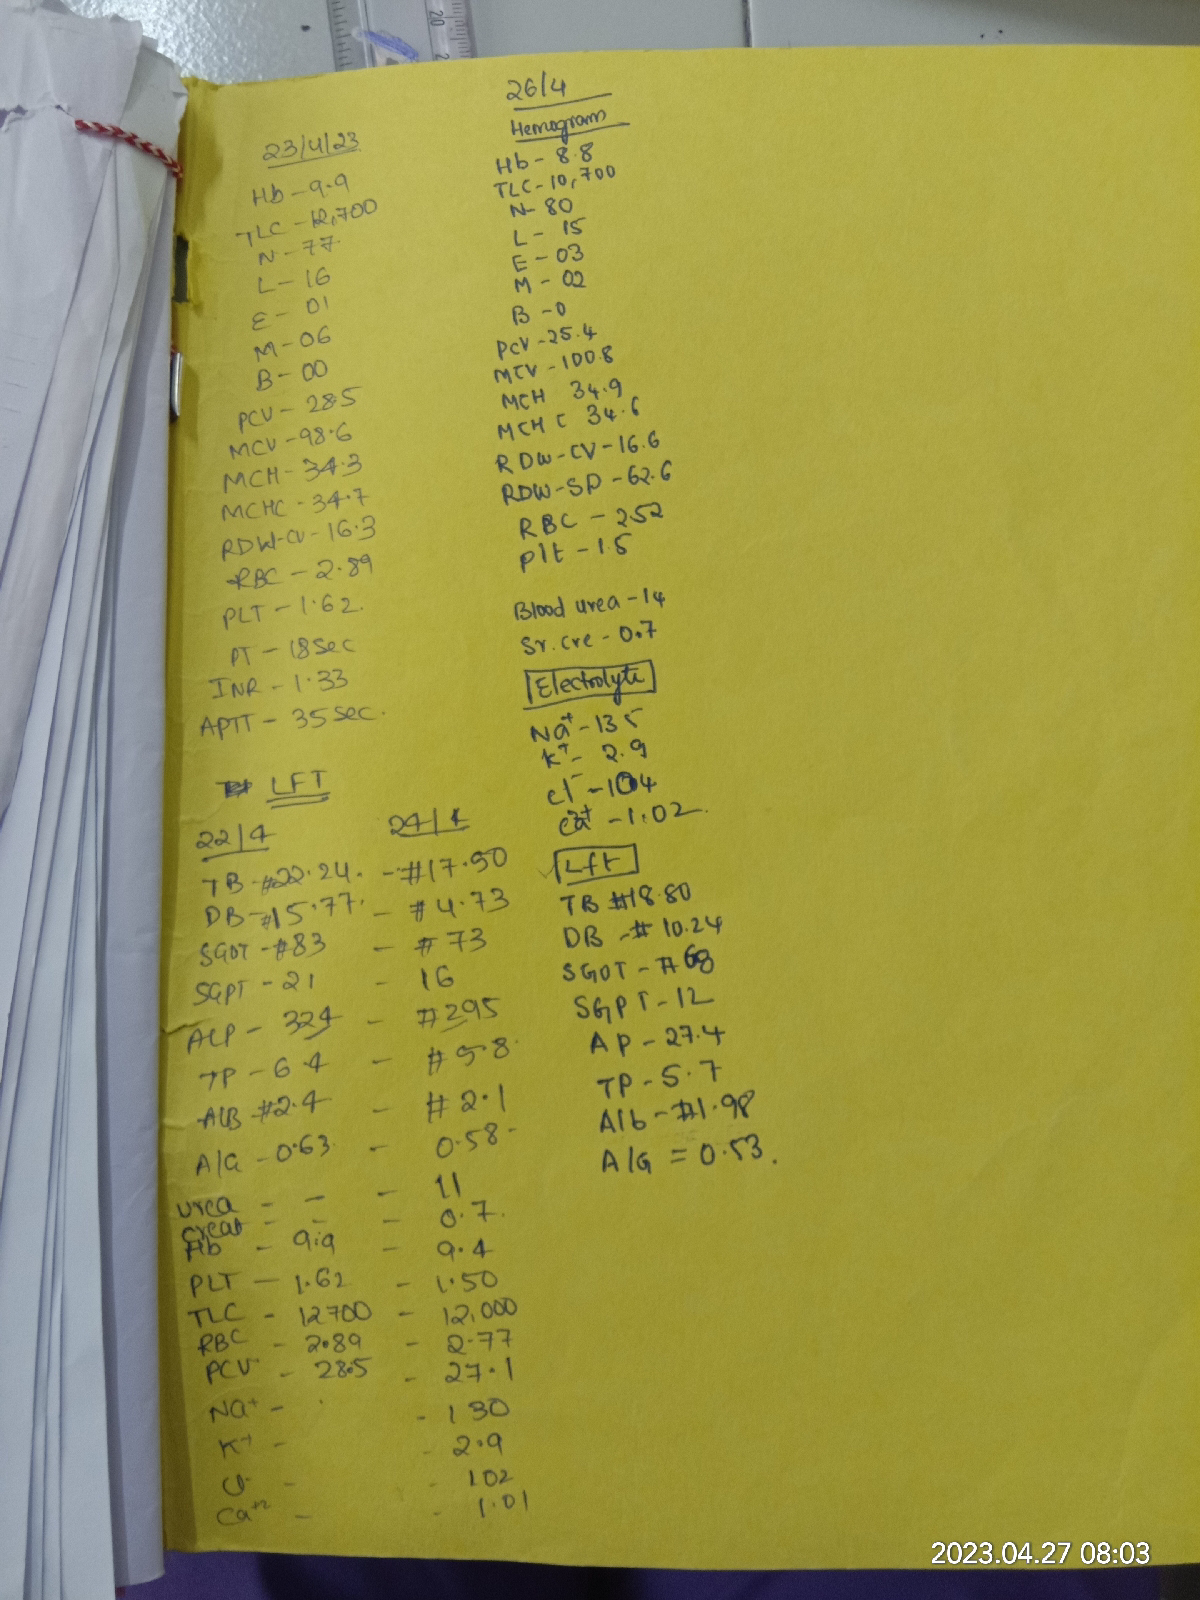 20
23/4/23
Hb - 9.9
TLC - 12,700
N - 77
L - 16
E - 01
M - 06
B - 00
PCV - 28.5
MCV - 98.6
MCH - 34.3
MCHC - 34.7
RDW-CV - 16.3
RBC - 2.89
PLT - 1.62.
PT - 18 sec
INR - 1.33
APTT - 35 sec.
LFT
22/4 24/4
TB - #22.24. - #17.50
DB - #15.77. - #4.73
SGOT - #83 - #73
SGPT - 21 - 16
ALP - 324 - #295
TP - 6.4 - #5.8
ALB - #2.4 - #2.1
A/G - 0.63 - 0.58
urea - - - 11
creat - - - 0.7
Hb - 9.9 - 9.4
PLT - 1.62 - 1.50
TLC - 12700 - 12,000
RBC - 2.89 - 2.77
PCV - 28.5 - 27.1
Na+ - - 130
K+ - - 2.9
Cl- - - 102
Ca+2 - - 1.01
26/4
Hemogram
Hb - 8.8
TLC - 10,700
N - 80
L - 15
E - 03
M - 02
B - 0
PCV - 25.4
MCV - 100.8
MCH 34.9
MCHC 34.6
RDW-CV - 16.6
RDW-SD - 62.6
RBC - 2.52
Plt - 1.5
Blood urea - 14
Sr. cre - 0.7
Electrolyte
Na+ - 135
K+ - 2.9
Cl- - 104
Ca2+ - 1.02
Lft
TB #18.80
DB - #10.24
SGOT - #68
SGPT - 12
AP - 27.4
TP - 5.7
Alb - #1.98
A/G = 0.53.
2023.04.27 08:03